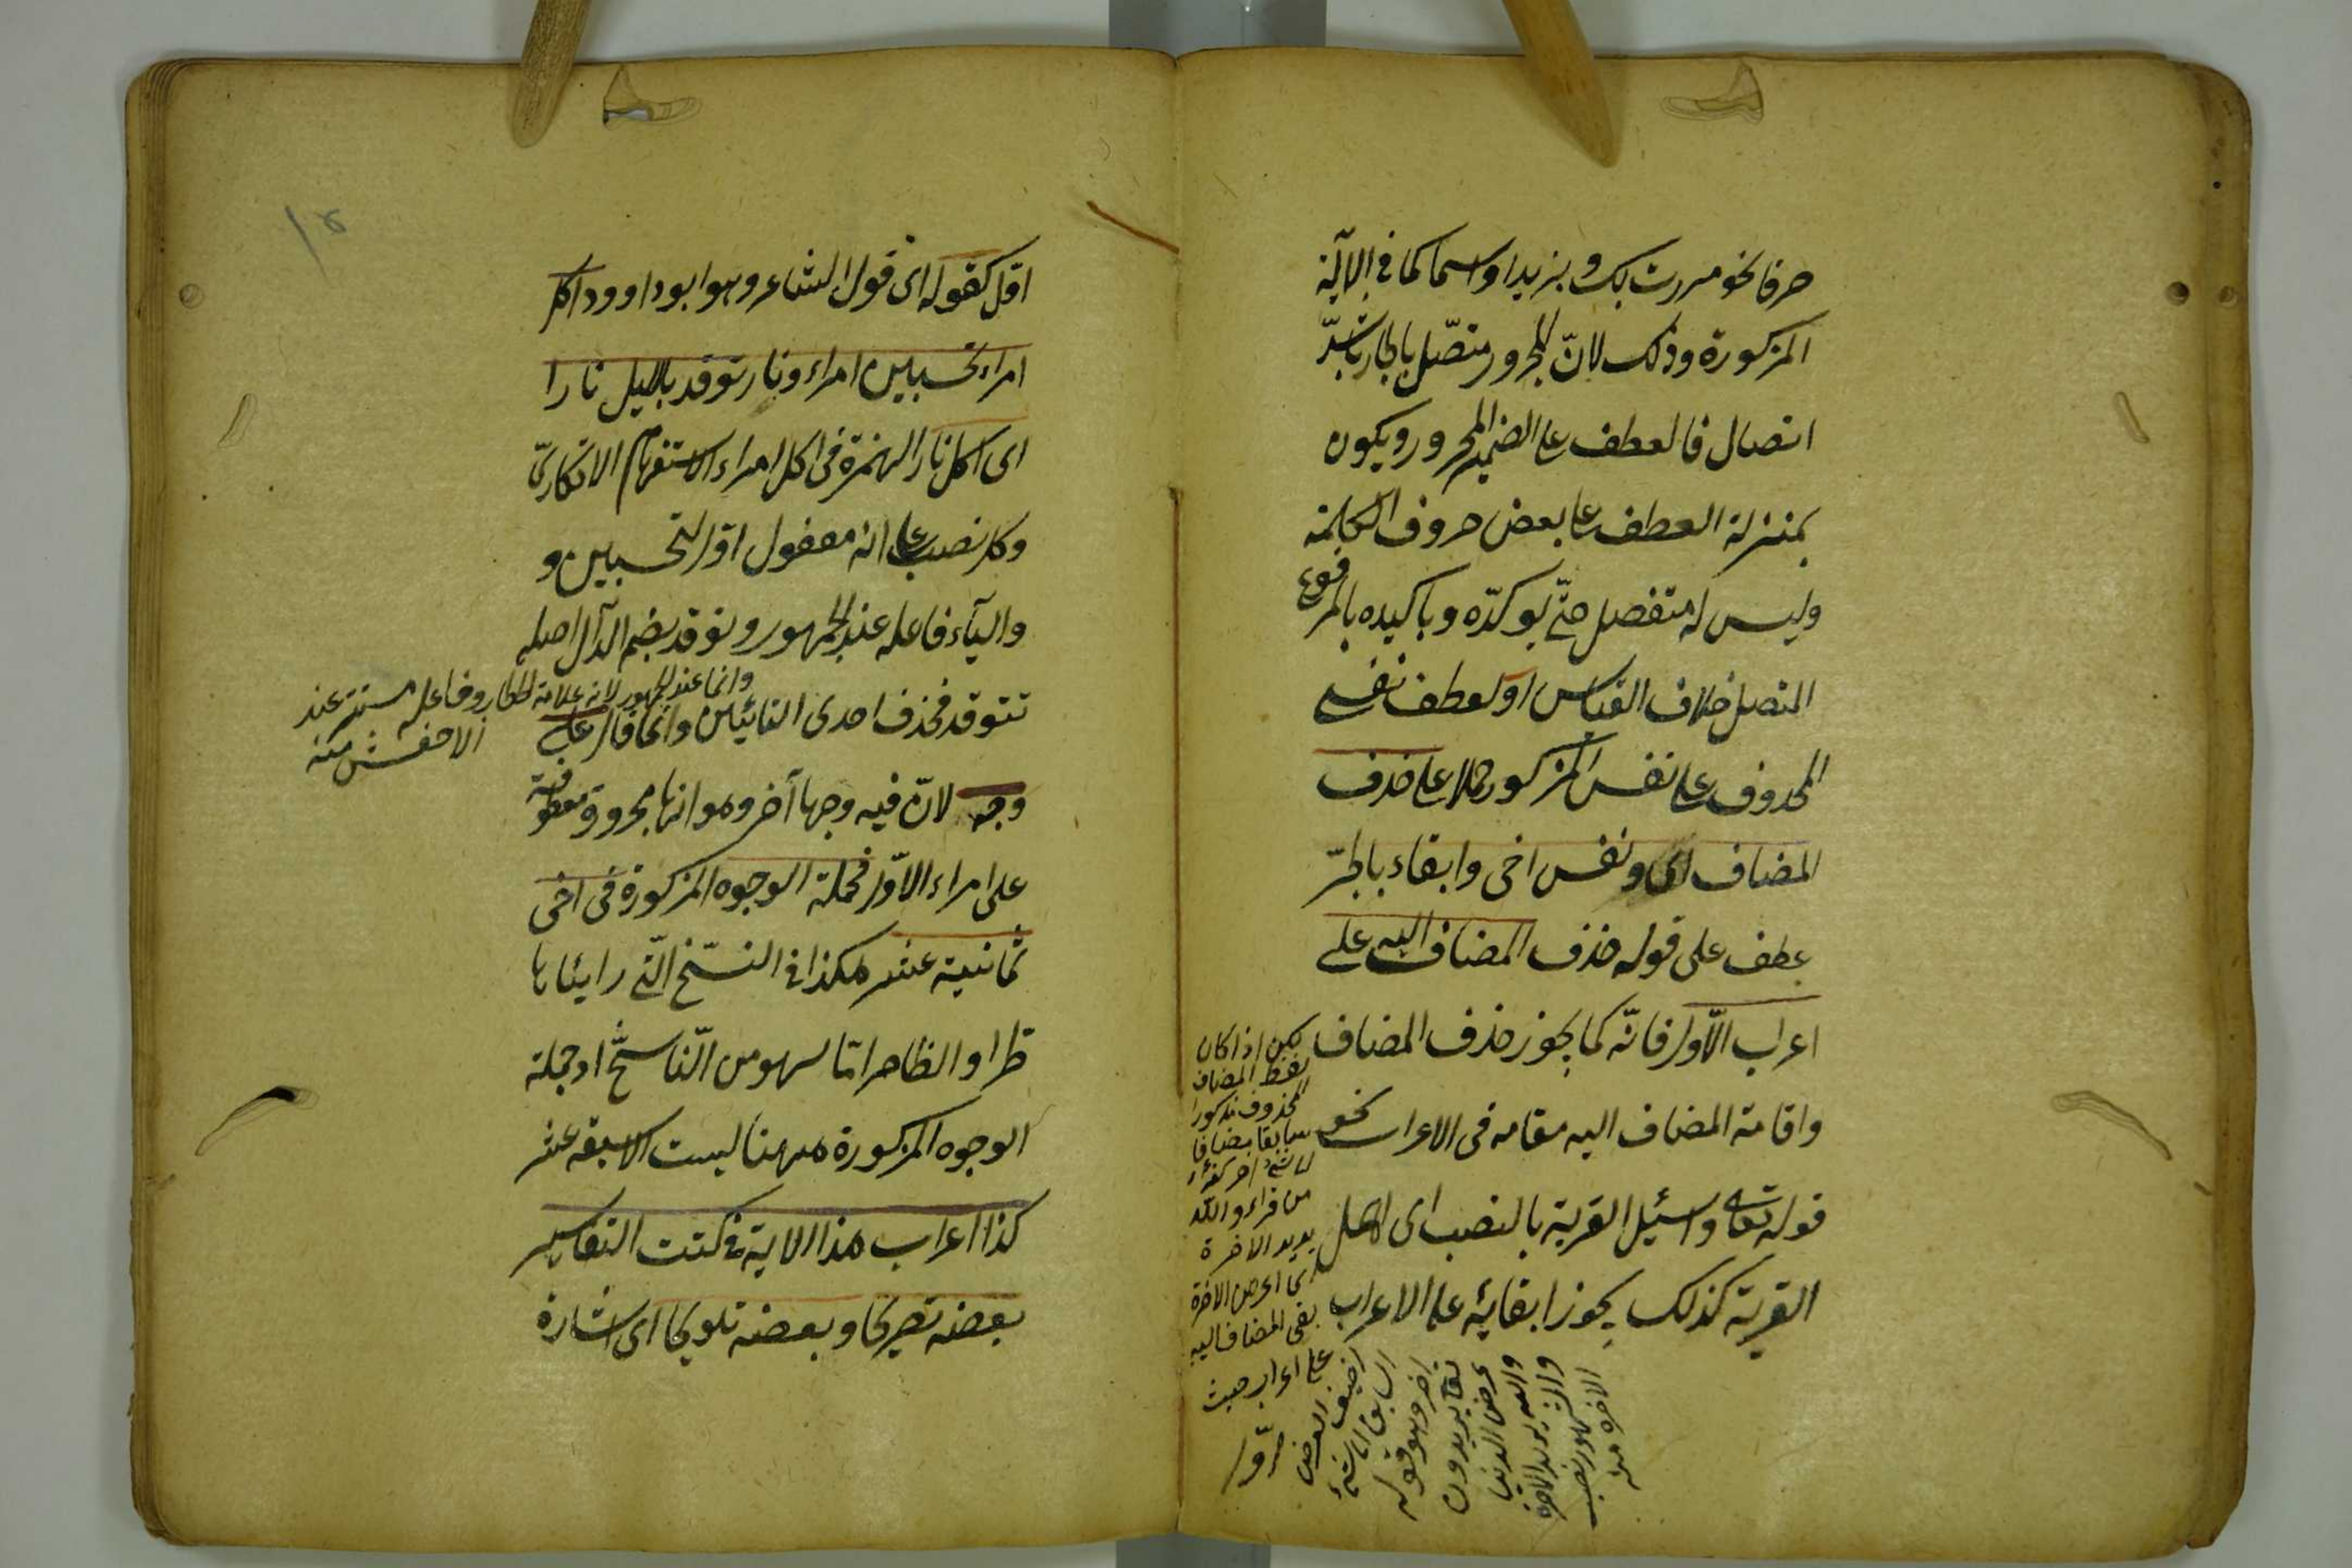 حرفا نحو مررت بك و بزيد او اسما كما فى الآية
المذكورة وذلك لانّ المجرور متصّل بالجار باشدّ
اتصال فالعطف على الضمير المجرور ويكون
بمنزلة العطف على بعض حروف الكلمة
وليس له متفصل حتّى يوكدّه وباكيده بالمرفوع
المتصل خلاف القياس او لعطف نفسى
المحذوف على نفس المذكور حملا على حذف
المضاف اى ونفس اخى وابقاء بالجرّ
عطف على قوله حذف المضاف اليه على
اعراب الاّول فانّه كما يجوز حذف المضاف
واقامة المضاف اليه مقامه فى الاعراب نحو
قوله تعالى واسئيل القرية بالنصب اى اهل
القرية كذلك يجوز ابقائه على الاعراب
لكن اذا كان
لفظ المضاف
المحذوف مذكورا
سابقا مضافا
الى شئ اخر كقرأة
من قراء والله
يريد الاخرة
اى عرض الاخرة
بقى المضاف اليه
على اعراب حيث
اضيف العرض
السابق الى شئ
اخر وهو قوله
تعالى يريدون
عرض الدنيا
والله يريد الاخرة
والمشهور نصب
الاخرة منه
اقل كقوله اى قول الشاعر وهو ابو داوود اكل
امراء تحسبين امراء ونار توقد بالليل نارا
اى اكل نار الهمزة فى اكل امراء الاستفهام الانكارىّ
وكل نصب على انه مفعول اوّل لتحسبين و
والياء فاعله عند الجمهور وتوقد بضم الدّال اصله
تتوقد فحذف احدى التائيّن وانّما قال على
وجه لانّ فيه وجها آخر وهو انها مجرورة معطوفة
على امراء الاوّل فجملة الوجوه المذكورة فى اخى
ثمانية عشر هكذا فى النسّخ الّتى راينّاها
طرا و الظاهر امّا سهو من النّاسخ اذ جملة
الوجوه المذكورة ههنا ليست الا سبعة عشر
كذا اعراب هذا الاية فى كتب التفاسير
بعضه تصريحا وبعضه تلويحا اى اشارة
وانما عند الجمهور لانه علامة الخطاب وفاعله مستتر عند
الاخفش منه